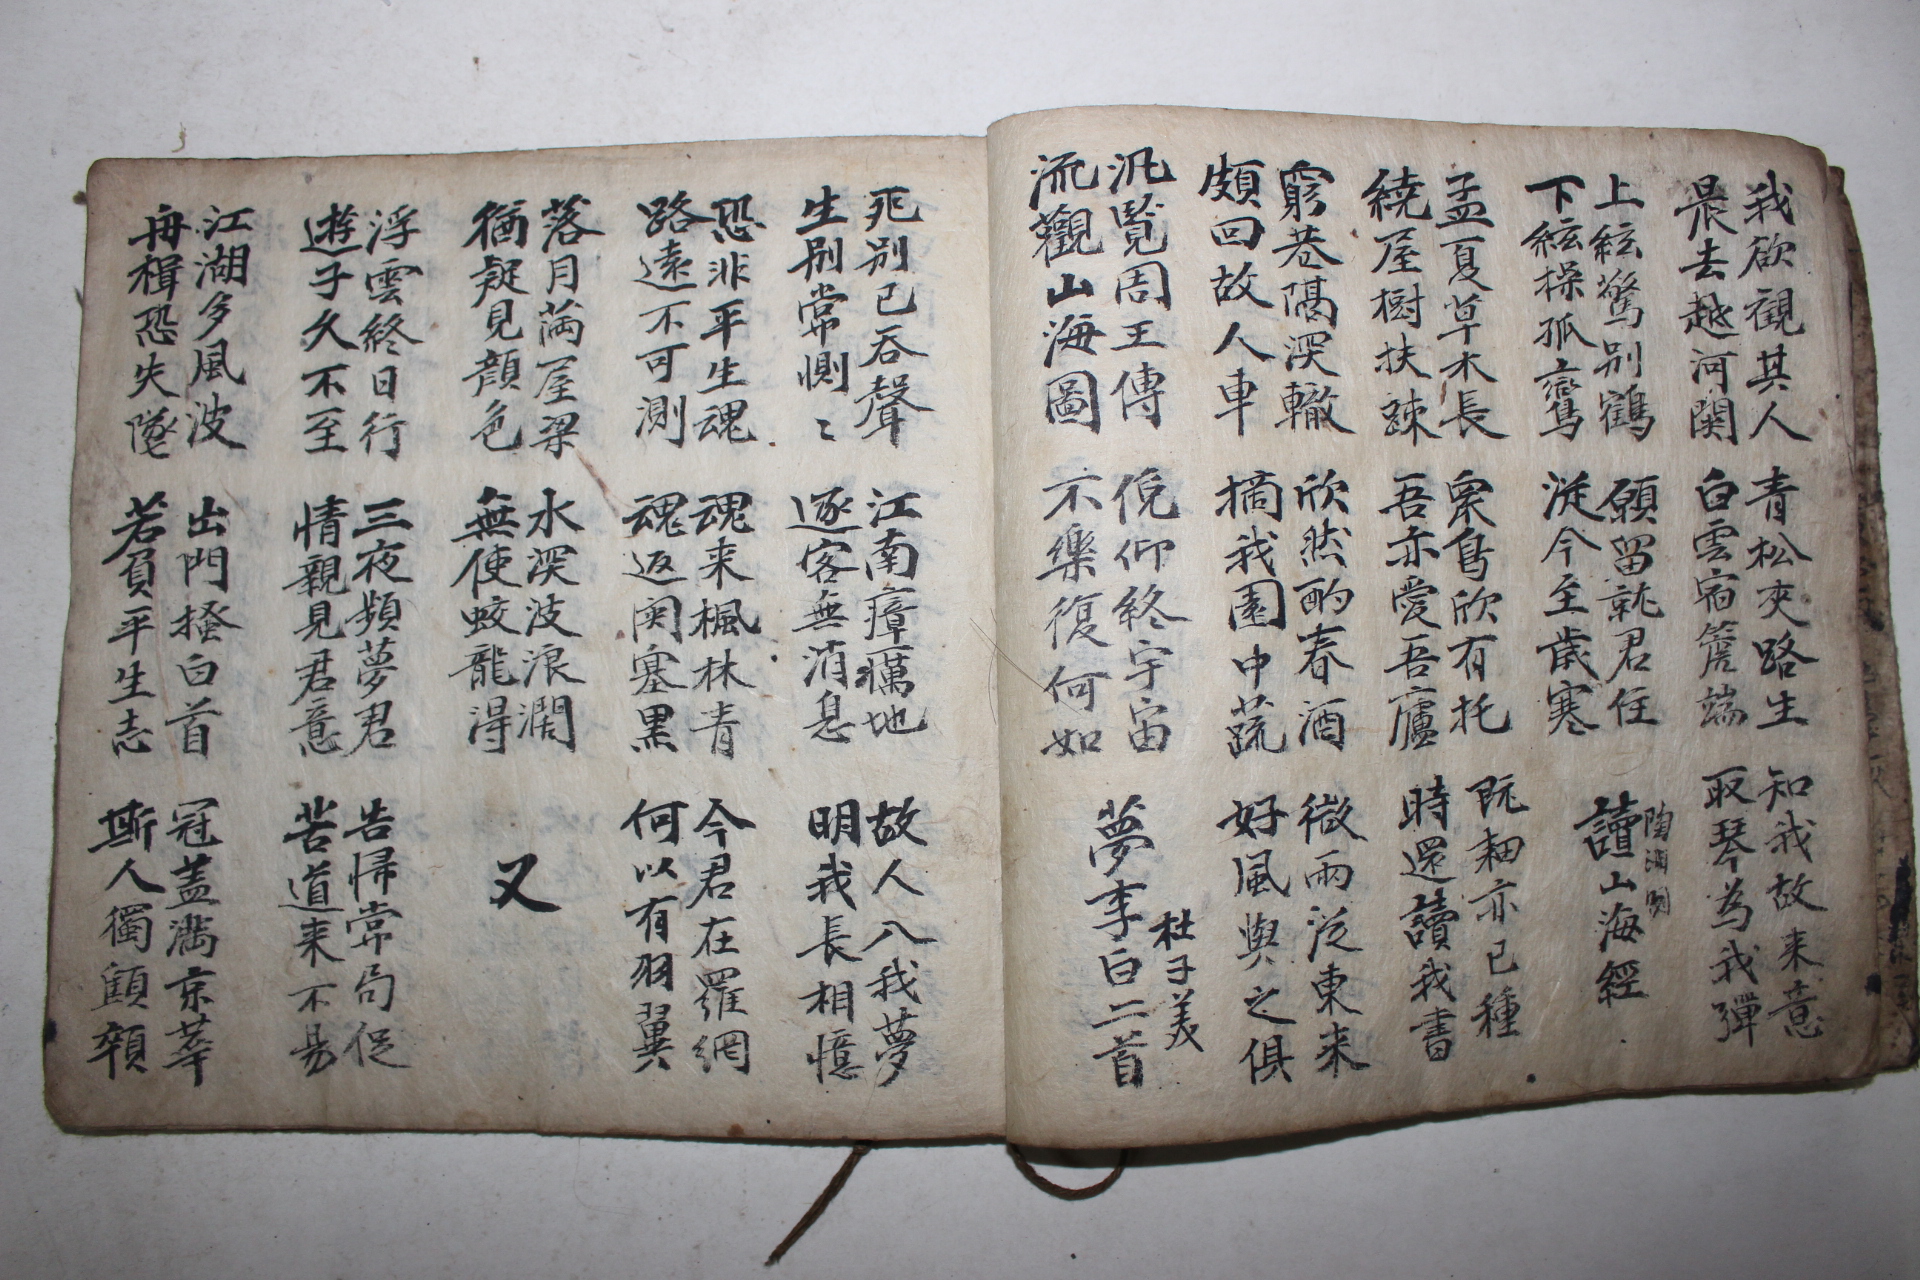 我欲觀其人
晨去越河関
青松夾路生
白雲宿簷端
知我故来意
取琴為我彈
上絃驚別鶴
下絃操孤鸞
願留就君住
從今至歲寒
讀山海經
陶淵明
孟夏草木長
繞屋樹扶疎
衆鳥欣有托
吾亦愛吾廬
既耕亦已種
時還讀我書
窮巷隔深轍
頗回故人車
欣然酌春酒
摘我園中蔬
微雨從東来
好風與之俱
汎覽周王傳
流觀山海圖
俛仰終宇宙
不樂復何如
夢李白二首
杜子美
死別已吞聲
生別常惻〻
江南瘴癘地
逐客無消息
故人入我夢
明我長相憶
恐非平生魂
路遠不可測
魂来楓林青
魂返関塞黒
今君在羅網
何以有羽翼
落月滿屋梁
猶疑見顔色
水深波浪濶
無使蛟龍得
又
浮雲終日行
遊子久不至
三夜頻夢君
情親見君意
告歸常局促
苦道来不易
江湖多風波
舟楫恐失墜
出門搔白首
若負平生志
冠盖滿京華
斯人獨顦顇